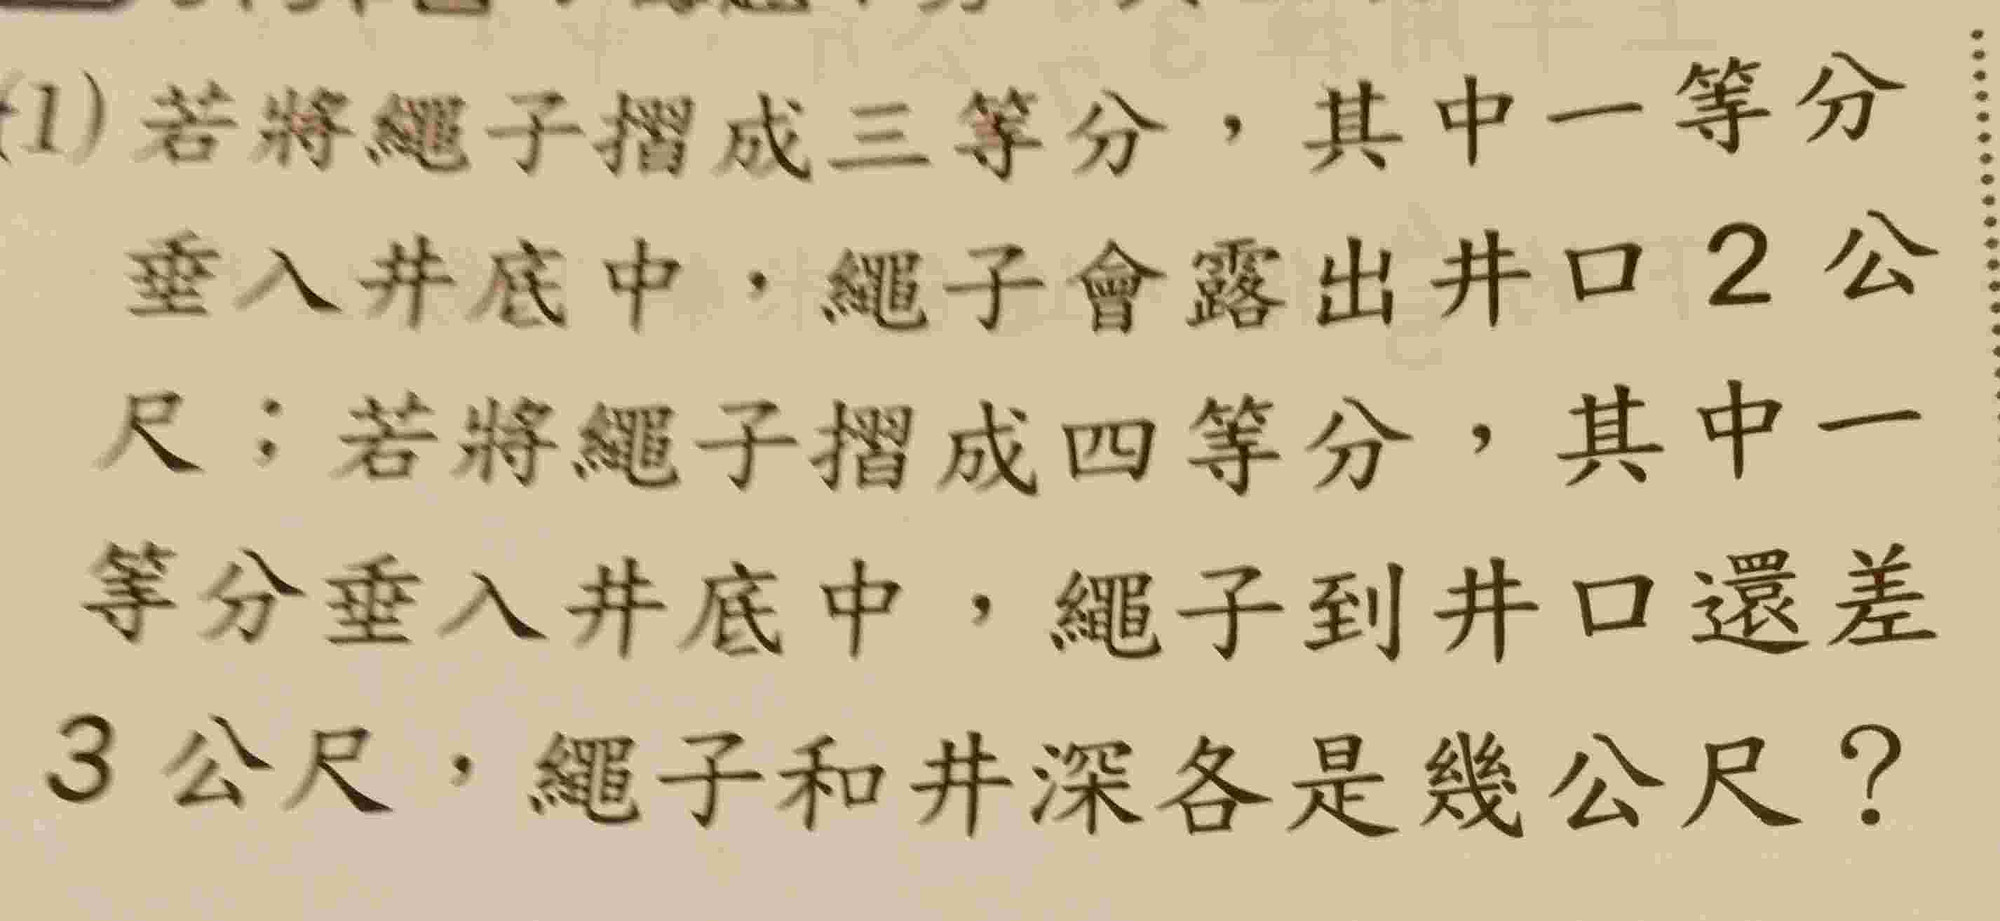 (1)若將繩子摺成三等分，其中一等分
垂入井底中，繩子會露出井口2公
尺；若將繩子摺成四等分，其中一
等分垂入井底中，繩子到井口還差
3公尺，繩子和井深各是幾公尺？